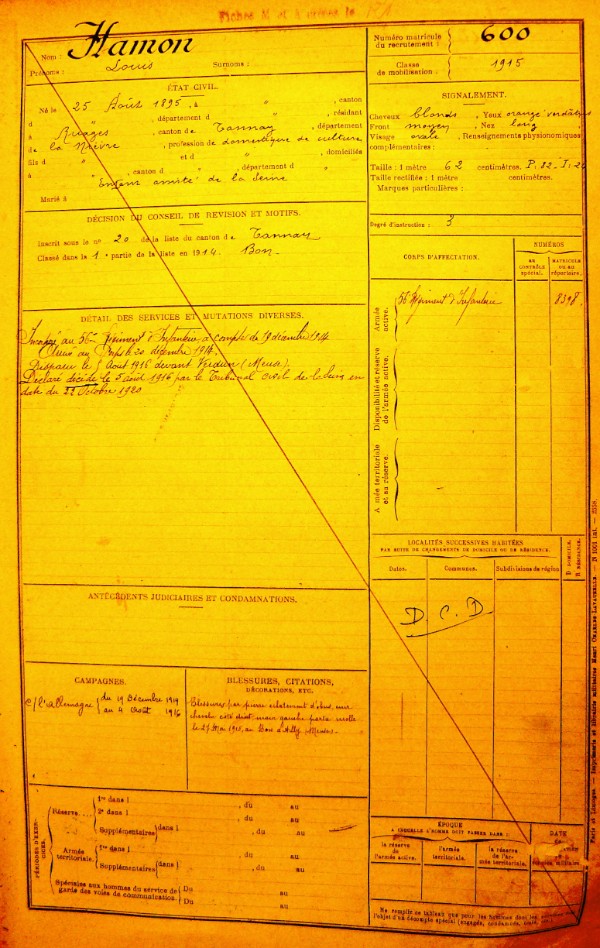 Nom : Hamon
Prénoms : Louis Surnoms :
Numéro matricule du recrutement : 600
Classe de mobilisation : 1915
ÉTAT CIVIL.
Né le 25 Août 1895, à " , canton
d " , département d " , résidant
à Ruages , canton de Tannay , département
de la Nièvre , profession de domestique de culture
fils d " et d " , domiciliés
à " , canton d " , département d "
Enfant assisté de la Seine
Marié à
DÉCISION DU CONSEIL DE REVISION ET MOTIFS.
Inscrit sous le n° 20 de la liste du canton de Tannay
Classé dans la 1e partie de la liste en 1914. Bon.
DÉTAIL DES SERVICES ET MUTATIONS DIVERSES.
Incorporé au 56e Régiment d'Infanterie à compter du 19 décembre 1914
au Corps le 20 décembre 1914.
Disparu le 5 Août 1916 devant Verdun (Meuse).
Déclaré décédé le 5 août 1916 par le Tribunal civil de la Seine en
date du 22 Octobre 1920
ANTÉCÉDENTS JUDICIAIRES ET CONDAMNATIONS.
CAMPAGNES.
c/ l'Allemagne du 19 Décembre 1914
au 4 Août 1916
BLESSURES, CITATIONS,
DÉCORATIONS, ETC.
Blessures par pierre éclatement d'obus, une
cheville côté droit main gauche
le 27 Mai 1915, au Bois d'Ailly Meuse.
PÉRIODES D'EXERCICES.
Réserve. 1re dans l , du au
2e dans l , du au
Supplémentaires dans l , du au
Armée territoriale. 1re dans l , du au
Supplémentaires dans l , du au
Spéciales aux hommes du service de garde des voies de communication Du au
Du au
SIGNALEMENT.
Cheveux blonds , Yeux orangé verdâtre
Front moyen , Nez long
Visage ovale , Renseignements physionomiques
complémentaires :
Taille : 1 mètre 62 centimètres.
Taille rectifiée : 1 mètre centimètres.
Marques particulières :
Degré d'instruction : 3
CORPS D'AFFECTATION.
NUMÉROS
AU CONTRÔLE SPÉCIAL.
MATRICULE OU AU RÉPERTOIRE.
Armée active.
56 Régiment d'Infanterie 8398
Disponibilité et réserve de l'armée active.
Armée territoriale et sa réserve.
LOCALITÉS SUCCESSIVES HABITÉES
PAR SUITE DE CHANGEMENTS DE DOMICILE OU DE RÉSIDENCE.
Dates. Communes. Subdivisions de région D. DOMICILE. R. RÉSIDENCE.
D.C.D
ÉPOQUE
A LAQUELLE L'HOMME DOIT PASSER DANS :
la réserve de l'armée active. l'armée territoriale. la réserve de l'armée territoriale.
DATE
Ne remplir ce tableau que pour les hommes dont
l'objet d'un décompte spécial
Paris et Limoges. — Imprimerie et librairie militaires Henri CHARLES-LAVAUZELLE.